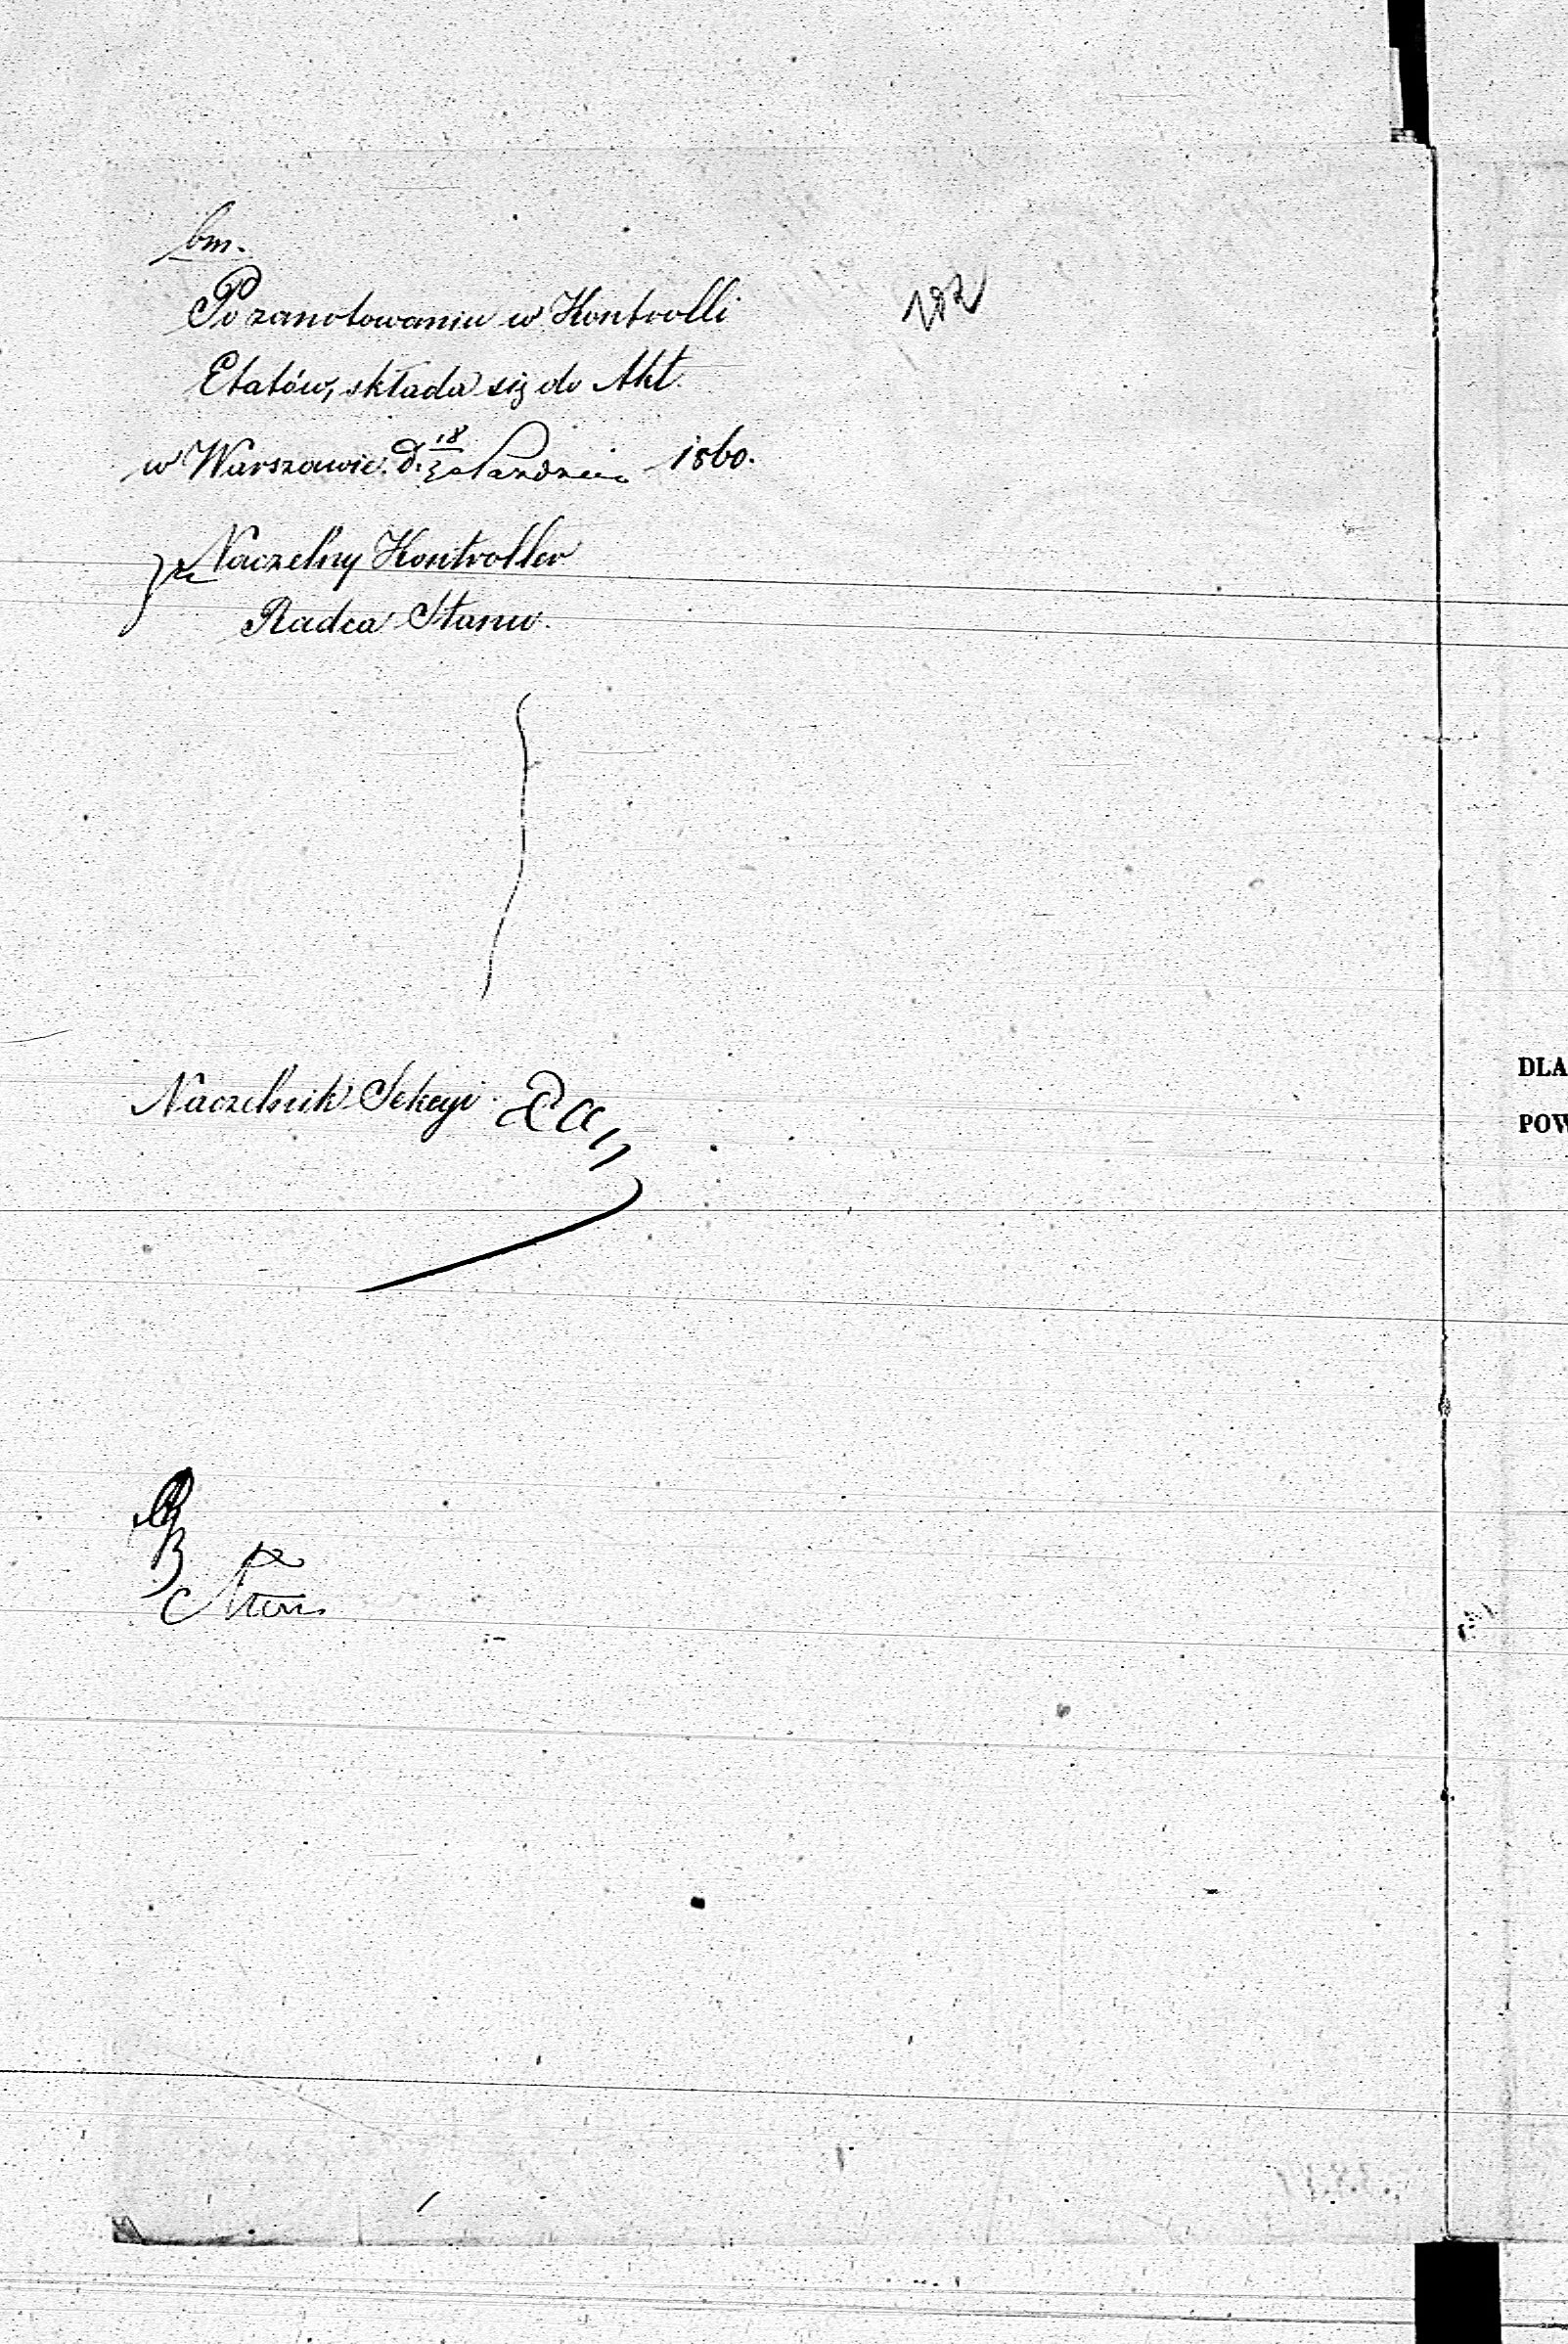 bm.
Po zanotowaniu w Kontrolli
182
Etatów, składa się do Akt
w Warszawie d. 18/30 Paździer 1860.
za Naczelny Kontroller
Radca Stanu.
Naczelnik Sekcyi
DLA
POW